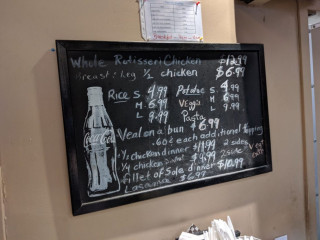 Whole Rotisseri Chicken $12.99
Breast: Leg ½ chicken $6.99
Rice S 4.99 Potatoe S 4.99
M 6.99 Veggs M 6.99
L 9.99 Pasta L 9.99
Veal on a bun $6.99
.60¢ each additional topping
½ chicken dinner $11.99 2 sides
¼ chicken dinner $9.99 2 side
fillet of Sole dinner $10.99
Lasagna $6.99
Coca-Cola